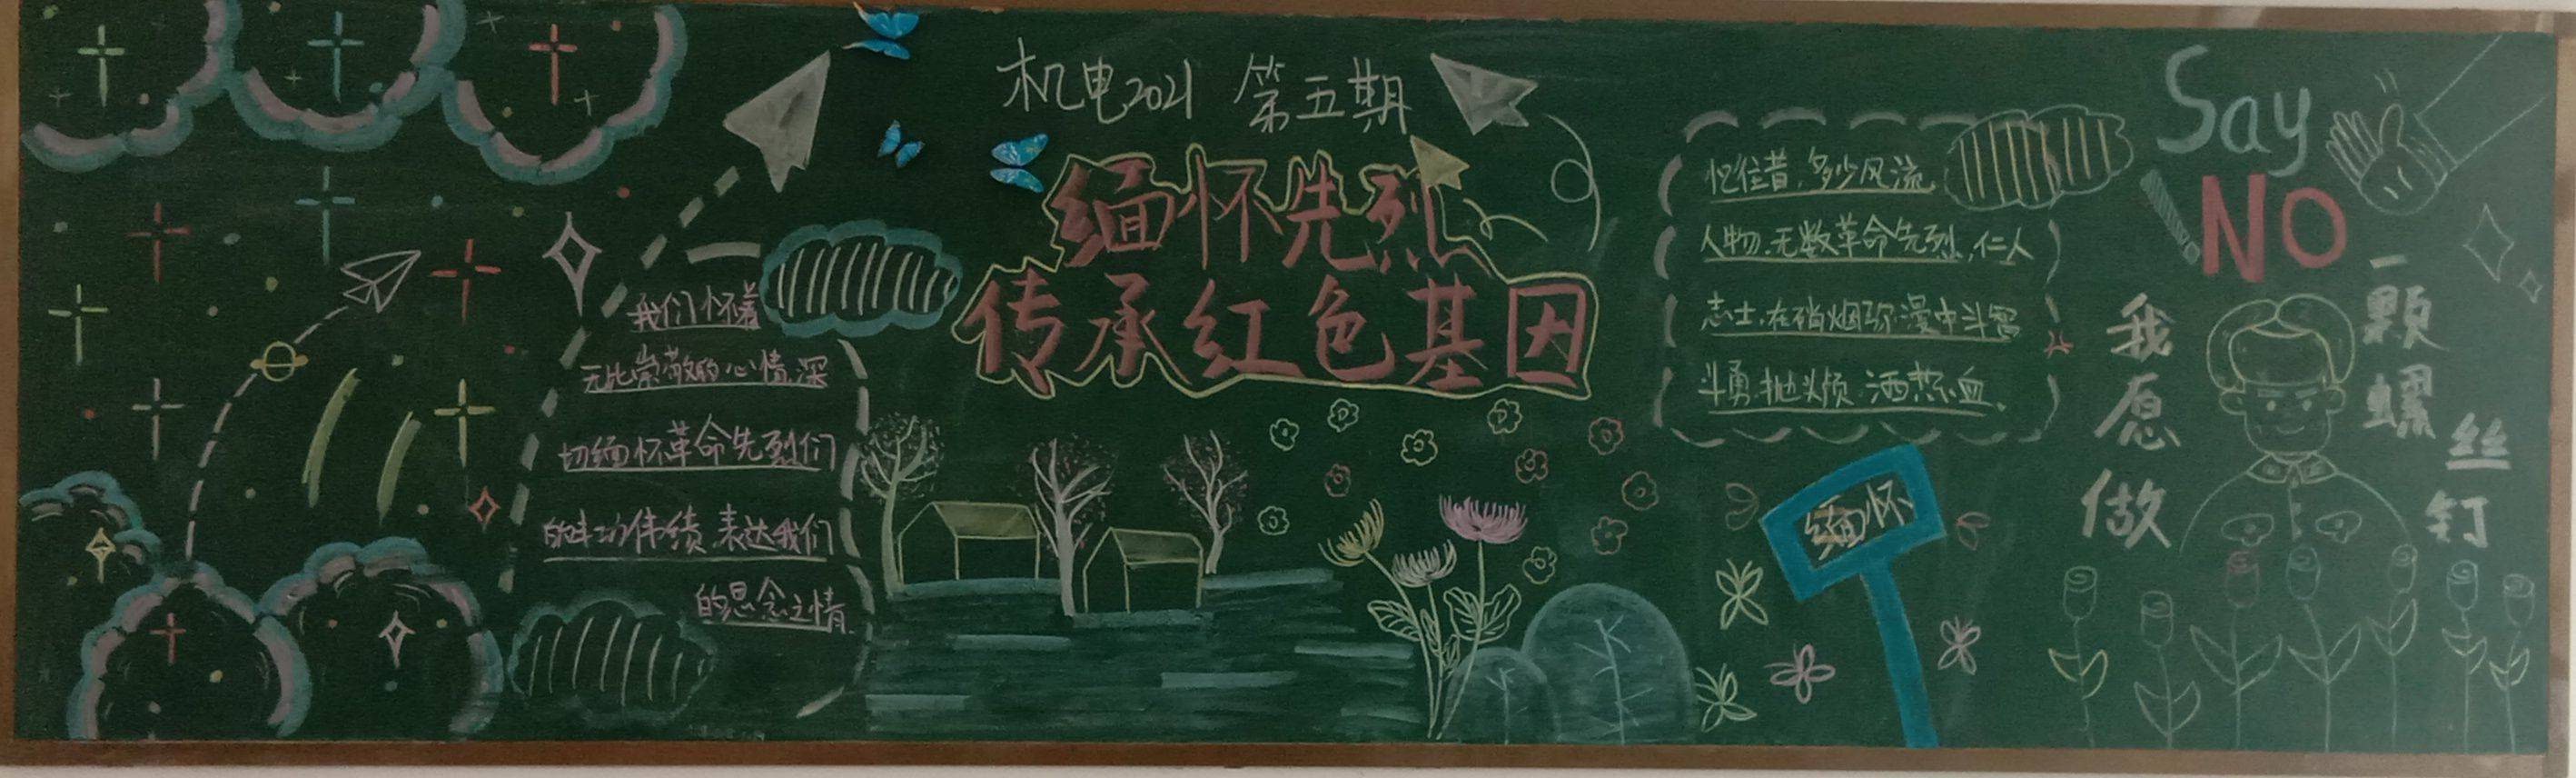 机电2021 第五期
缅怀先烈
传承红色基因
我们怀着
无比崇敬的心情,深
切缅怀革命先烈们
的丰功伟绩,表达我们
的思念之情.
忆往昔,多少风流
人物.无数革命先烈,仁人
志士,在硝烟弥漫中斗智
斗勇,抛头颅.洒热血.
缅怀
Say
NO
我愿做
一颗螺丝钉